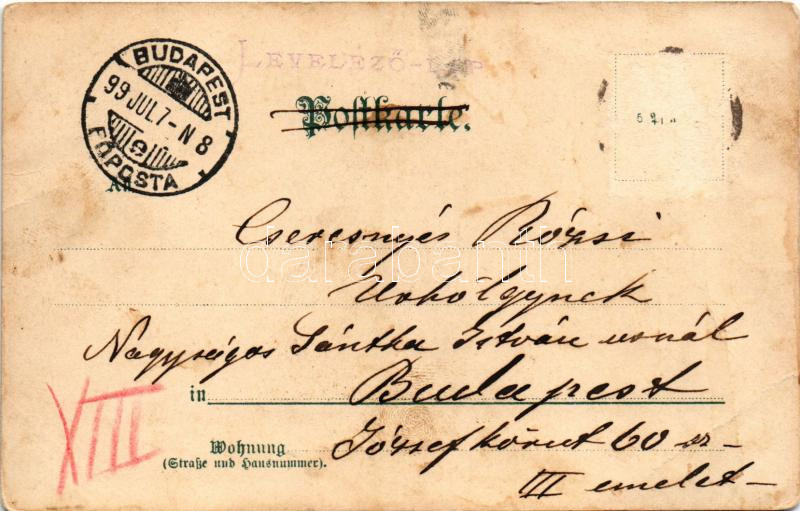 LEVELEZŐ-LAP
Postkarte.
BUDAPEST
99 JUL 7 - N 8
FŐPOSTA
An
Cseresnyés Rózsi
Urhölgynek
Nagyságos Sántha István urnál
in Budapest
Wohnung
(Straße und Hausnummer).
József körut 60 sz -
III emelet -
XIII
darabanth